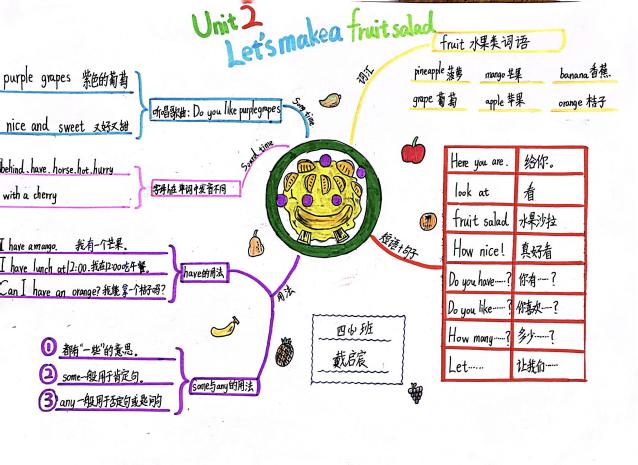 Unit 2
Let's make a fruit salad
fruit 水果类词语
词汇
pineapple 菠萝 mango 芒果 banana 香蕉
grape 葡萄 apple 苹果 orange 桔子
purple grapes 紫色的葡萄
nice and sweet 又好又甜
听唱歌曲: Do you like purple grapes
Song time
Sound time
behind. have. horse. hot. hurry
with a cherry
字母h在单词中发音不同
I have a mango. 我有一个芒果。
I have lunch at 12:00. 我在12:00吃午餐。
Can I have an orange? 我能拿一个桔子吗?
have的用法
用法
① 都有"一些"的意思。
② some一般用于肯定句。
③ any一般用于否定句或疑问句
some与any的用法
短语+句子
Here you are. 给你。
look at 看
fruit salad 水果沙拉
How nice! 真好看
Do you have……? 你有……?
Do you like……? 你喜欢……?
How many……? 多少……?
Let…… 让我们……
四(6)班
戴启宸